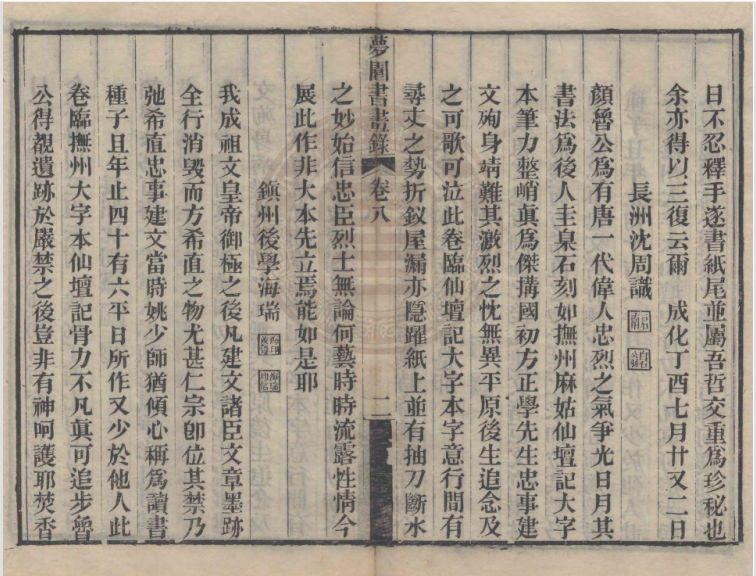 日不忍釋手遂書紙尾並屬吾哲交重爲珍秘也
余亦得以三復云爾　成化丁酉七月廿又二日
長洲沈周識
顏魯公爲有唐一代偉人忠烈之氣爭光日月其
書法爲後人圭臬石刻如撫州麻姑仙壇記大字
本筆力整峭眞爲傑搆國初方正學先生忠事建
文殉身靖難其激烈之忱無異平原後生追念及
之可歌可泣此卷臨仙壇記大字本字意行間有
尋丈之勢折釵屋漏亦隱躍紙上並有抽刀斷水
夢園書畫錄　卷八　二
之妙始信忠臣烈士無論何藝時時流露性情今
展此作非大本先立焉能如是耶
鎭州後學海瑞
我成祖文皇帝御極之後凡建文諸臣文章墨跡
全行消毀而方希直之物尤甚仁宗卽位其禁乃
弛希直忠事建文當時姚少師猶傾心稱爲讀書
種子且年止四十有六平日所作又少於他人此
卷臨撫州大字本仙壇記骨力不凡眞可追步魯
公得覩遺跡於嚴禁之後豈非有神呵護耶焚香